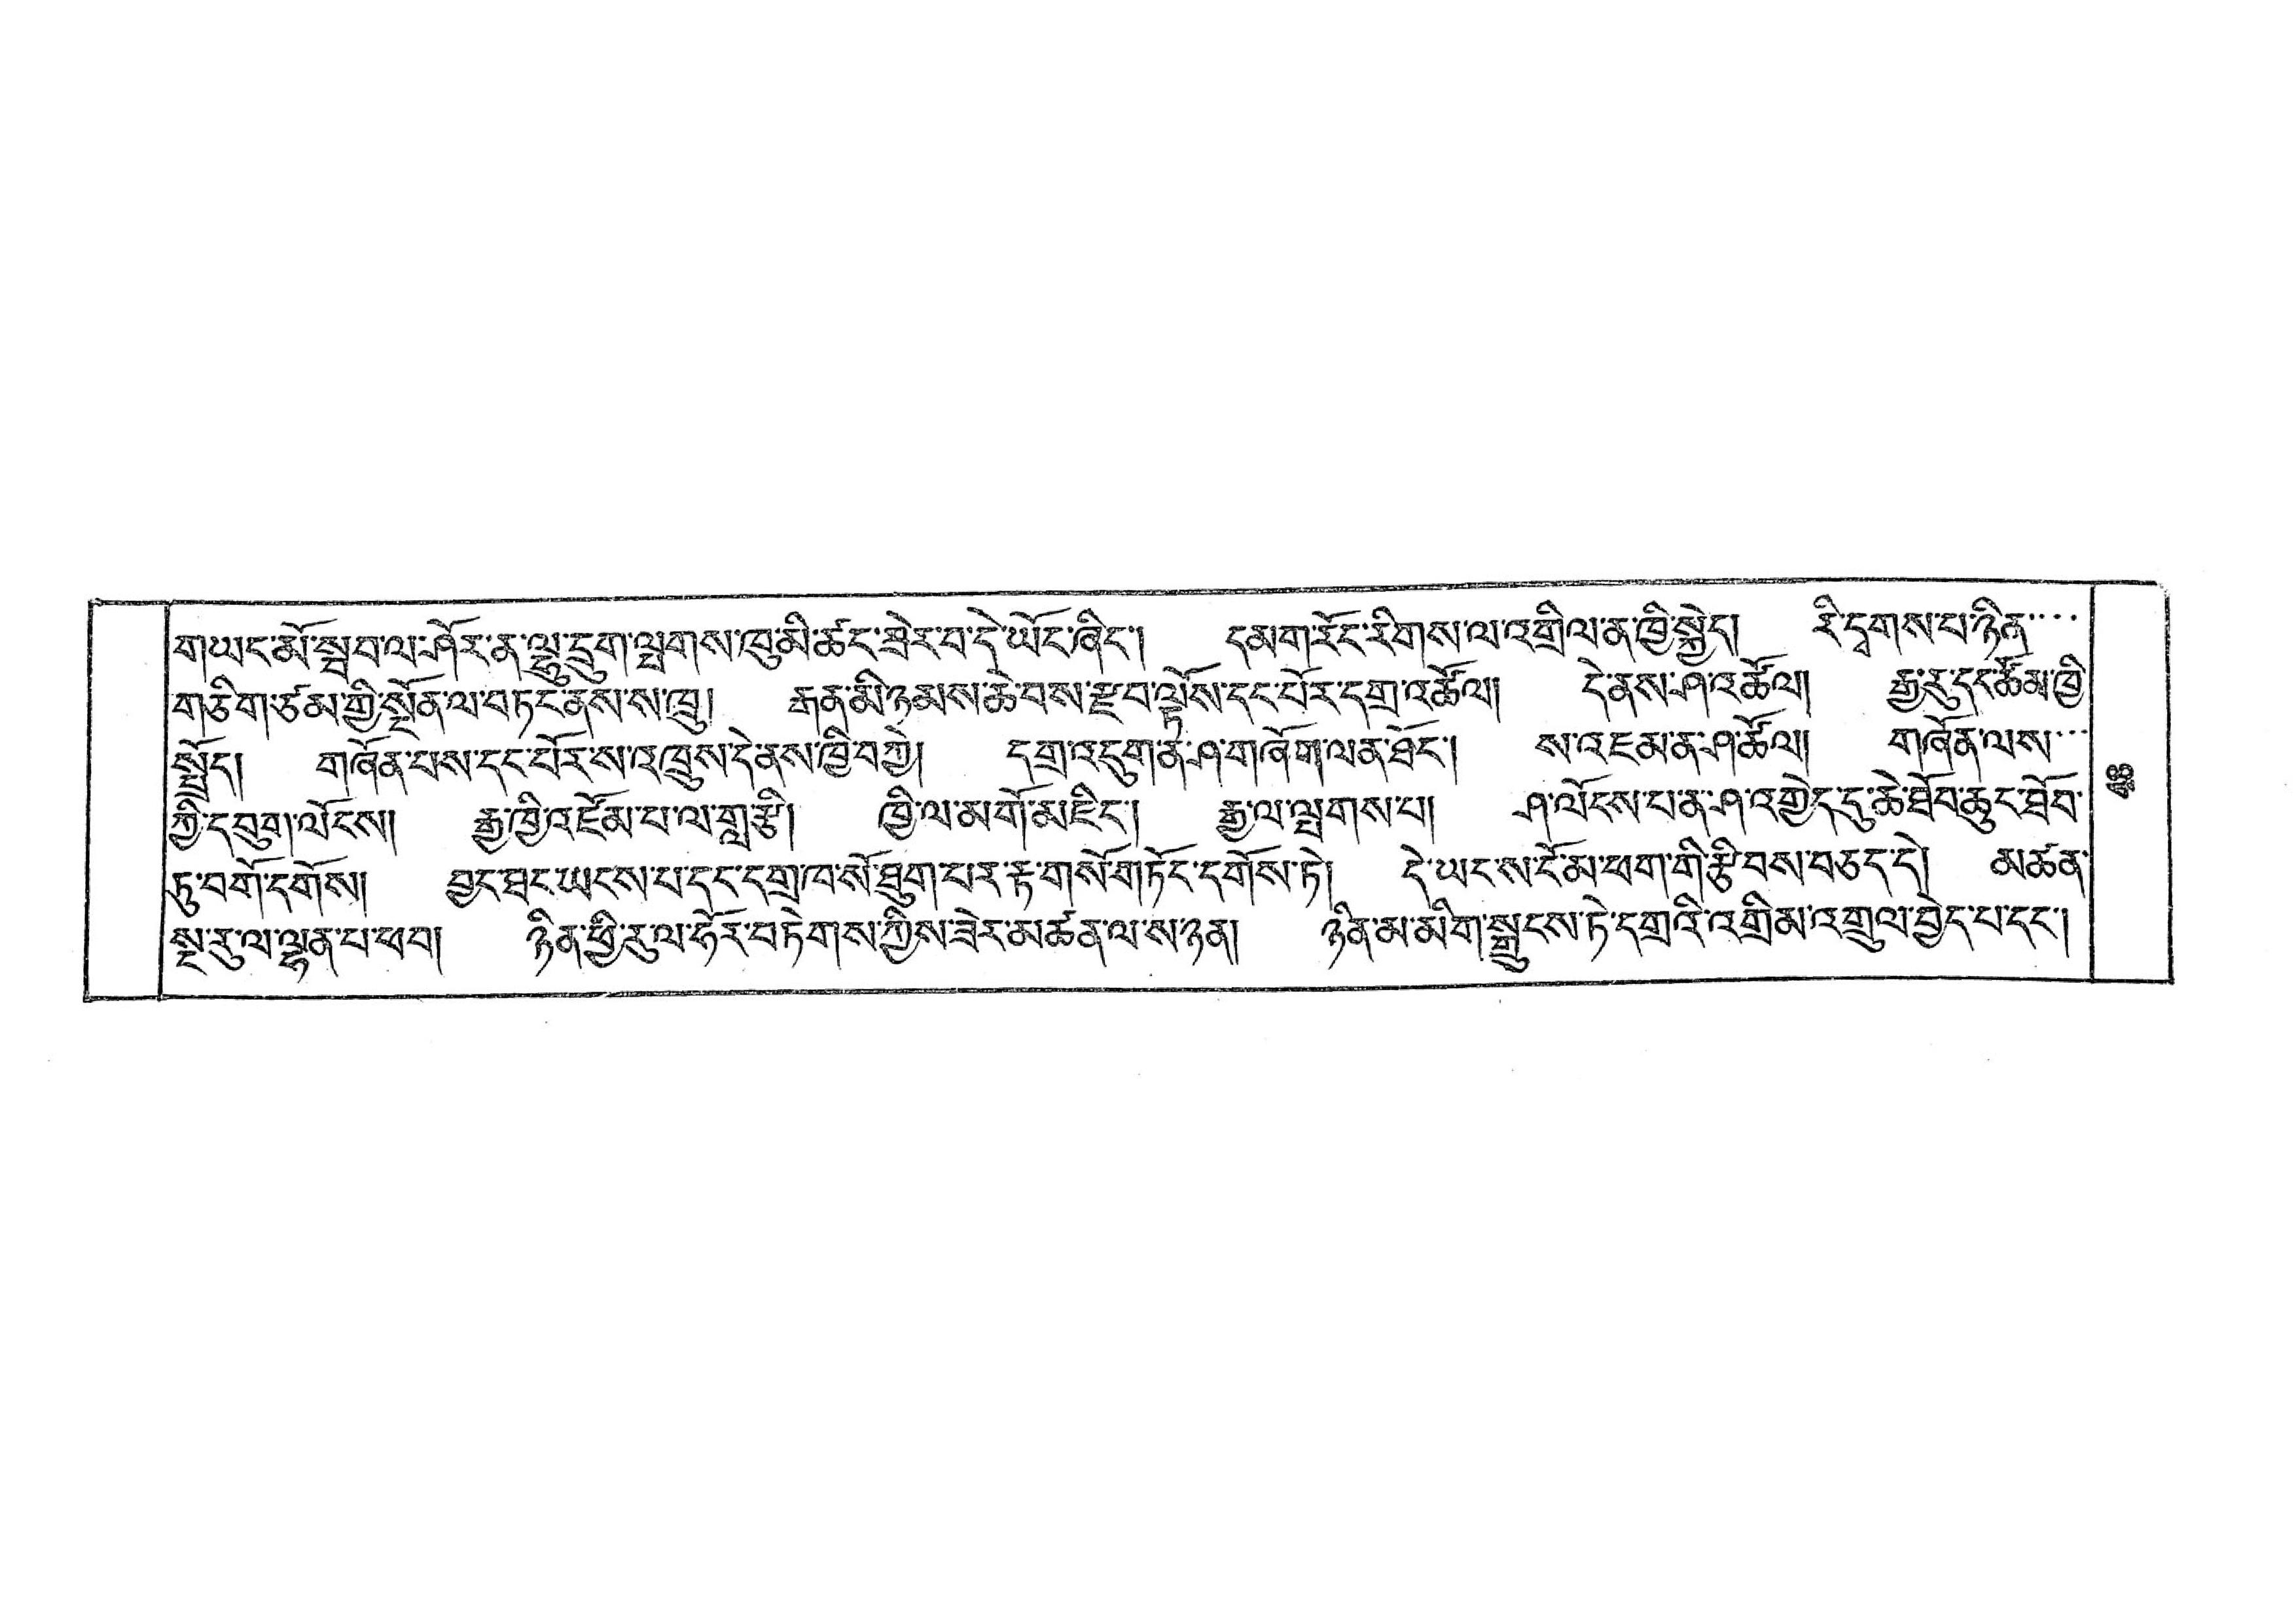 གཡང་མོ་སྦྲབ་ལ་ཤོར་ན་ལྷུ་དྲུག་ལྤགས་ཁུ་མི་ཚང་ཟེར་བ་དེ་ཡོང་ཞིང་། དམག་རོང་རིགས་ལ་འགྲིལ་ན་ཁྱི་སྐྱེད། རི་དྭགས་པ་ཉིན་
གཅིག་ཙམ་གྱི་སྔོན་ལ་བཏང་ནས་ས་ཁྲུ། རྒན་མི་ཉམས་ཆེ་བས་རྫབ་ལྟོས་དང་པོར་དགྲ་འཚོལ། དེ་ནས་ཤ་འཚོལ། རྒྱ་རུ་དང་ཚོམ་ཁྱི
སྤྲོད། གཞོན་པས་དང་པོར་ས་འཁྲུས་དེ་ནས་ཁྱི་བཀྱེ། དགྲ་འདུག་ན་ཤ་གཞོག་ལན་ཐོང་། ས་འཇམ་ན་ཤ་ཚོལ། གཞོན་ལས་
ཀྱི་དབུག་ལོངས། རྒྱ་ཁྱི་འཛོམ་པ་ལ་གླ་རྩི། ཁྱི་ལ་མགོ་མཇིང་། རྒྱ་ལ་ལྤགས་པ། ཤ་ལོངས་པ་ན་ཤ་འགྱེད་དུ་ཆེ་ཐོབ་ཆུང་ཐོབ་
ཏུ་བགོ་དགོས། བྱང་ཐང་ཡངས་པ་དང་དགྲ་ཁ་སོ་ཐུག་པར་རྟ་གསོག་ཏོང་དགོས་ཏེ། དེ་ཡང་ས་ངོམ་ཕག་གི་རྩིབས་བཅད་དེ། མཚན་
སྔ་རུ་ལ་ལྷན་པ་ཕབ། ཉིན་ཕྱི་རུ་ལ་ཧོར་བཏེགས་ཀྱིས་ཟེར་མཚན་ལ་ས་ཉན། ཉིན་མ་མིག་སྒྲུངས་ཏེ་དགྲའི་འགྲིམ་འགྲུལ་བྱེད་པ་དང་།